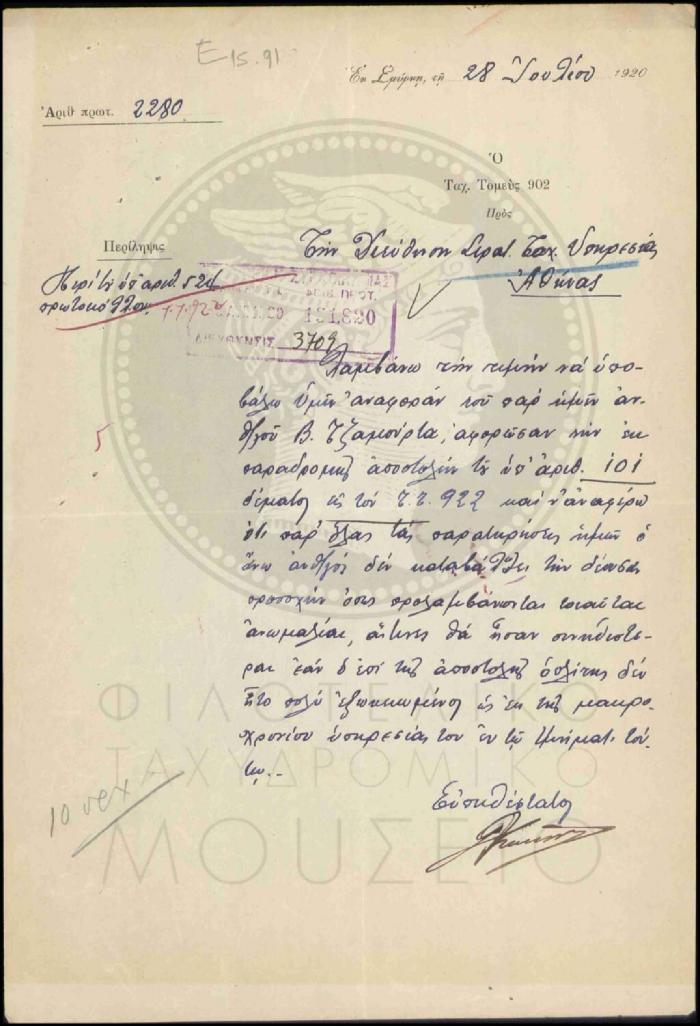 Ε 15.91
Ἐν Σμύρνῃ, τῇ 28 Ἰουλίου 1920
Ἀριθ πρωτ. 2280
Ὁ
Ταχ. Τομεὺς 902
Πρὸς
Τὴν Διεύθυνση Στρατ. Ταχ. Υπηρεσίας
Ἀθήνας
Περίληψις
Περὶ τ ὑπ ἀριθ. 524
πρωτοκό
7.7.922
ΑΡΙΘ. ΠΡΩΤ.
181,820
ΔΙΕΥΘΥΝΣΙΣ 3709
Λαμβάνω τὴν τιμὴν νὰ ὑπο-
βάλω ὑμῖν ἀναφορὰν τοῦ παρ ἡμῖν ἀν-
θ/γοῦ Β. Τζαμούρτα, ἀφορῶσαν τὴν ἐκ
παραδρομῆς ἀποστολὴν τοῦ ὑπ ἀριθ. 101
δέματος εἰς τὸν Τ.Τ. 922 καὶ ν ἀναφέρω
ὅτι παρ ὅλας τὰς παρατηρήσεις ἡμῶν ὁ
ἄνω ἀνθ/γὸς δὲν καταβάλλει τὴν δέουσαν
προσοχὴν ὅπως προλαμβάνονται τοιαῦται
ἀνωμαλίαι, αἵτινες θὰ ἦσαν συνηθέστε-
ραι ἐὰν ὁ ἐπὶ τῆς ἀποστολῆς ὁπλίτης δὲν
ἦτο πολὺ ἐξωκειωμένος ὡς ἐκ τῆς μακρο-
χρονίου ὑπηρεσίας του ἐν τῷ τμήματι τού-
τῳ.-
Εὐπειθέστατος
5
10
ΦΙΛΟΤΕΛΙΚΟ
ΤΑΧΥΔΡΟΜΙΚΟ
ΜΟΥΣΕΙΟ